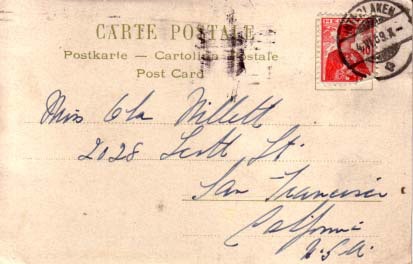 CARTE POSTALE
Postkarte — Cartolina postale
Post Card
LAKEN
Miss Ela Willett
2028 Scott St.
San Francisco
California
U.S.A.